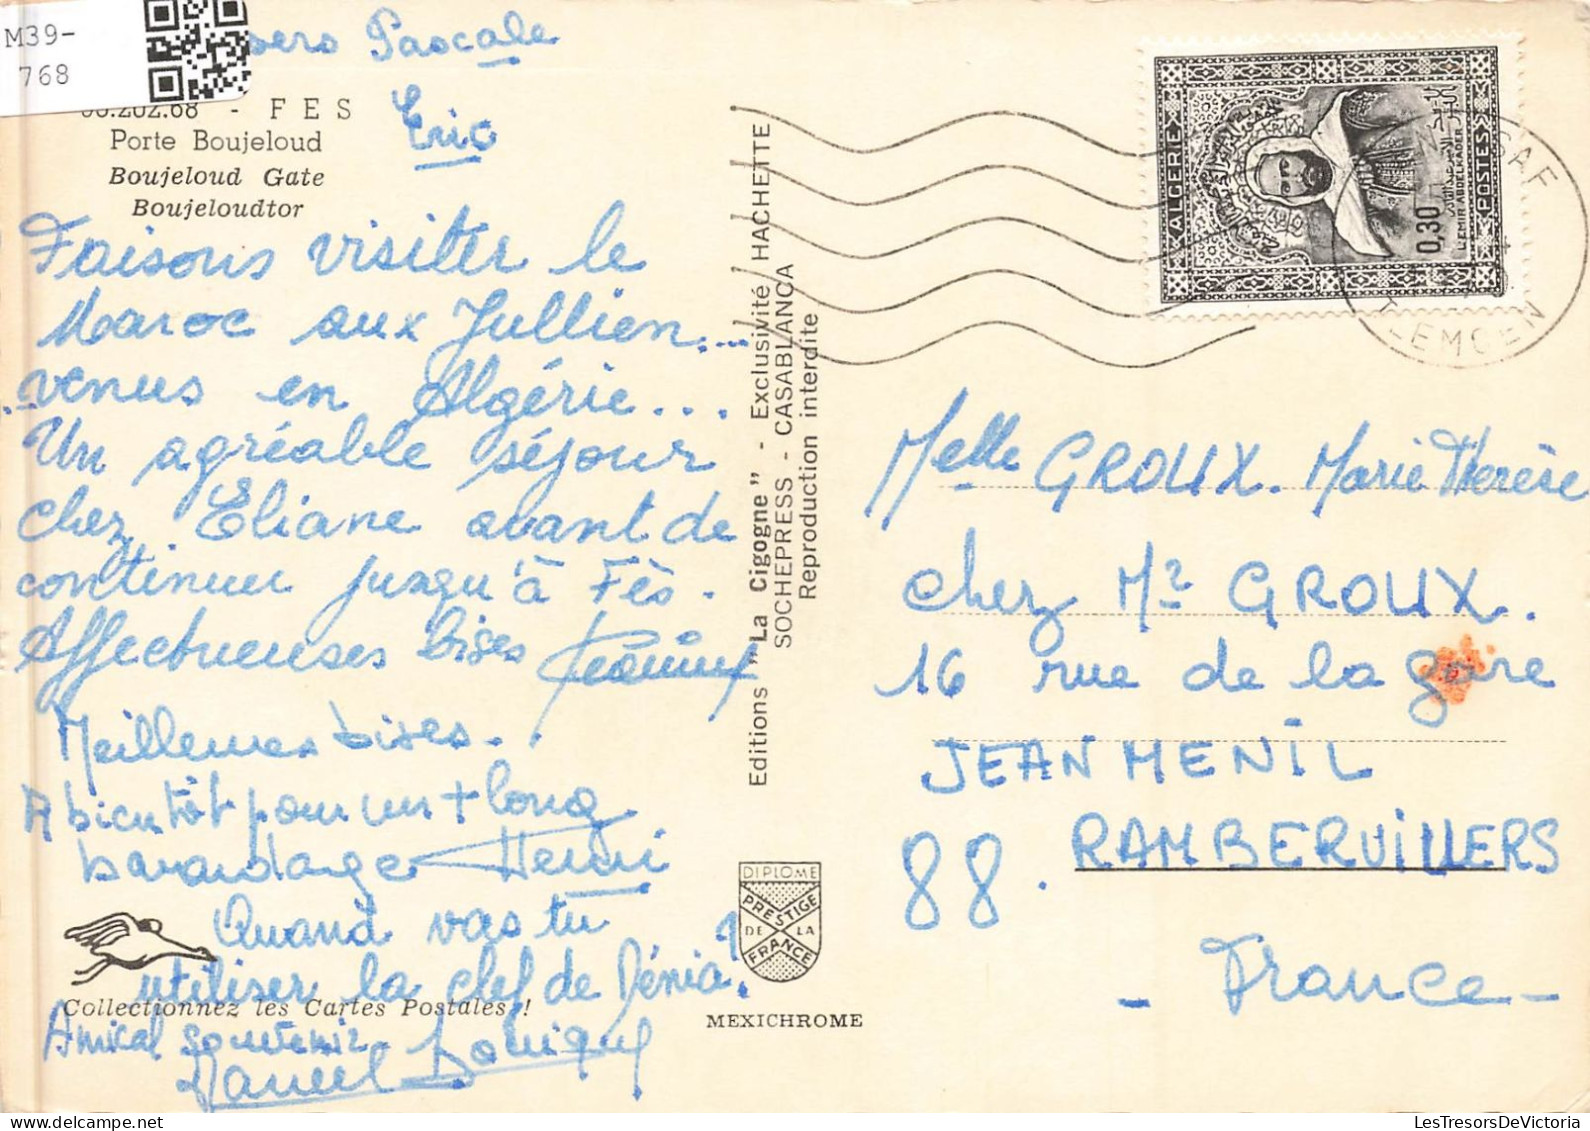 M39-
768
Pascale
Eric
- FES
Porte Boujeloud
Boujeloud Gate
Boujeloudtor
Faisons visiter le
Maroc aux Jullien...
venus en Algérie...
Un agréable séjour
chez Eliane avant de
continuer jusqu'à Fès.
Affectueuses bises
Meilleures bises.
A bientôt pour un + long
bavardage Henri
Quand vas tu
utiliser la clef de Dénia?
Collectionnez les Cartes Postales !
Amical souvenir
Editions "La Cigogne" - Exclusivité HACHETTE
SOCHEPRESS - CASABLANCA
Reproduction interdite
DIPLOME
PRESTIGE
DE LA
FRANCE
MEXICHROME
ALGERIE
POSTES
0,30
L'EMIR ABDELKADER
TLEMCEN
Melle GROUX. Marie Therèse
chez Mr GROUX.
16 rue de la gare
JEANMENIL
88. RAMBERVILLERS
- France -
LesTresorsDeVictoria.com